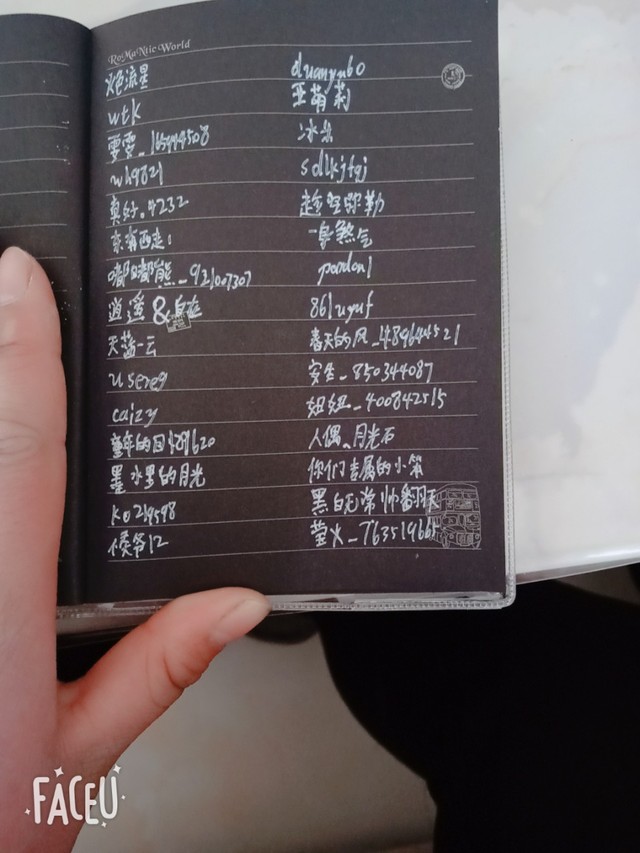 RoMaNtic World
流星 duanyu60
wtk 亚萌莉
雯雯_165944508 冰朵
wh9821 sdlkjfgj
真好.4232 弥勒
东 西走1 一身煞气
嘟嘟熊_921007307 pardon1
逍遥& 861uguf
天蓝一云 春天的风_489644521
usereg 安生_850344087
caizy 妞妞_400842515
童年的回忆1620 人偶、月光石
墨水里的月光 你们专属的小笨
ko219598 黑白无常帅翻天
爷12 萤火_763519665
FACEU